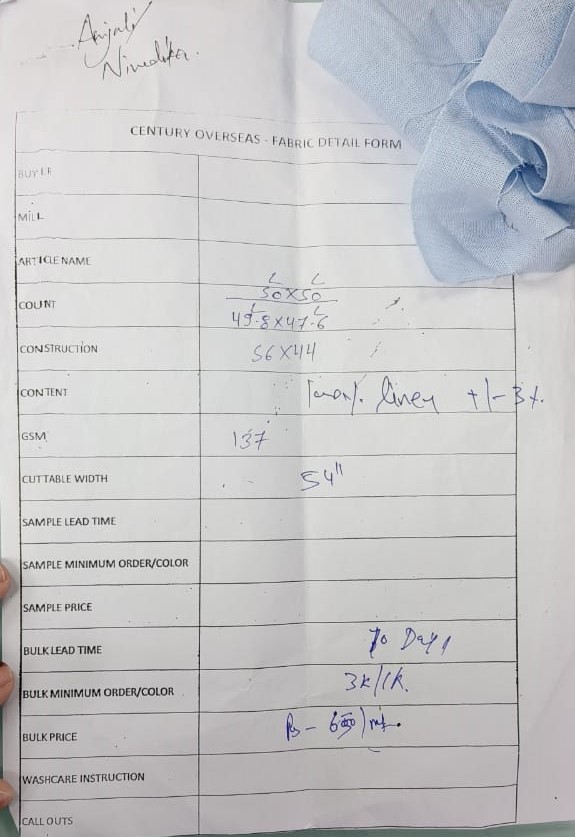 Anjali
Nivedita.
CENTURY OVERSEAS - FABRIC DETAIL FORM
BUYER
MILL
ARTICLE NAME
L L
COUNT 50X50
L L
49.8X47.6
CONSTRUCTION 56X44
CONTENT 100%. linen +/- 3%.
GSM 137
CUTTABLE WIDTH 54"
SAMPLE LEAD TIME
SAMPLE MINIMUM ORDER/COLOR
SAMPLE PRICE
BULK LEAD TIME Days
BULK MINIMUM ORDER/COLOR 3k/1k.
BULK PRICE
WASHCARE INSTRUCTION
CALL OUTS